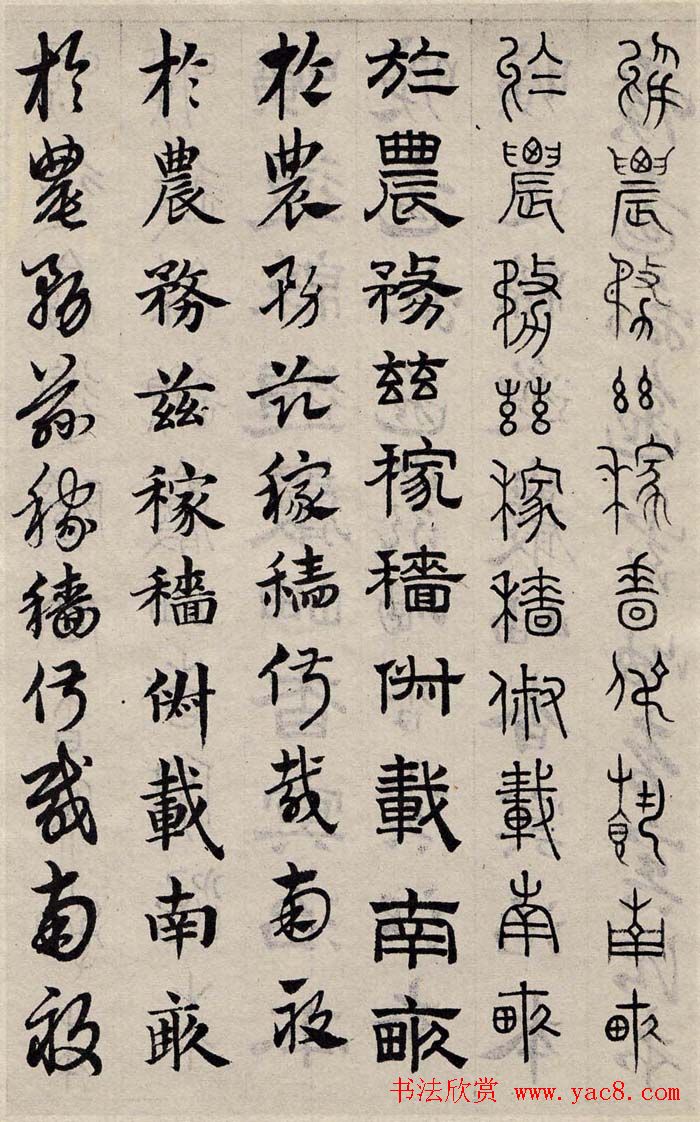 於農務茲稼穡俶載南畝
於農務茲稼穡俶載南畝
於農務茲稼穡俶載南畝
於農務茲稼穡俶載南畝
於農務茲稼穡俶載南畝
於農務茲稼穡俶載南畝
书法欣赏 www.yac8.com